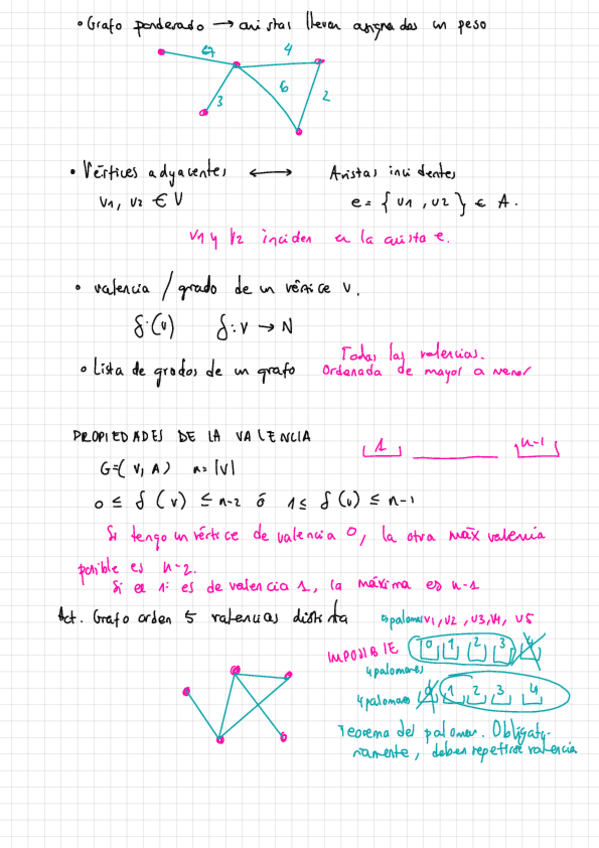 • Grafo ponderado → aristas llevan asignadas un peso
4
6
3
2
• Vértices adyacentes ⟷ Aristas incidentes
v1, v2 ∈ V e = { v1, v2 } ∈ A.
v1 y v2 inciden en la arista e.
• valencia / grado de un vértice v.
δ(v) δ: v → N
• Lista de grados de un grafo
Todas las valencias.
Ordenada de mayor a menor
PROPIEDADES DE LA VALENCIA
1 n-1
G=(V, A) n=|V|
0 ≤ δ(v) ≤ n-2 ó 1 ≤ δ(v) ≤ n-1
Si tengo un vértice de valencia 0, la otra máx valencia
posible es n-2.
Si el 1: es de valencia 1, la máxima es n-1
Act. Grafo orden 5 valencias distinta
5palomas v1, v2, v3, v4, v5
IMPOSIBLE 0 1 2 3 4
4palomares
4palomares 0 1 2 3 4
Teorema del palomar. Obligato-
riamente, deben repetirse valencia